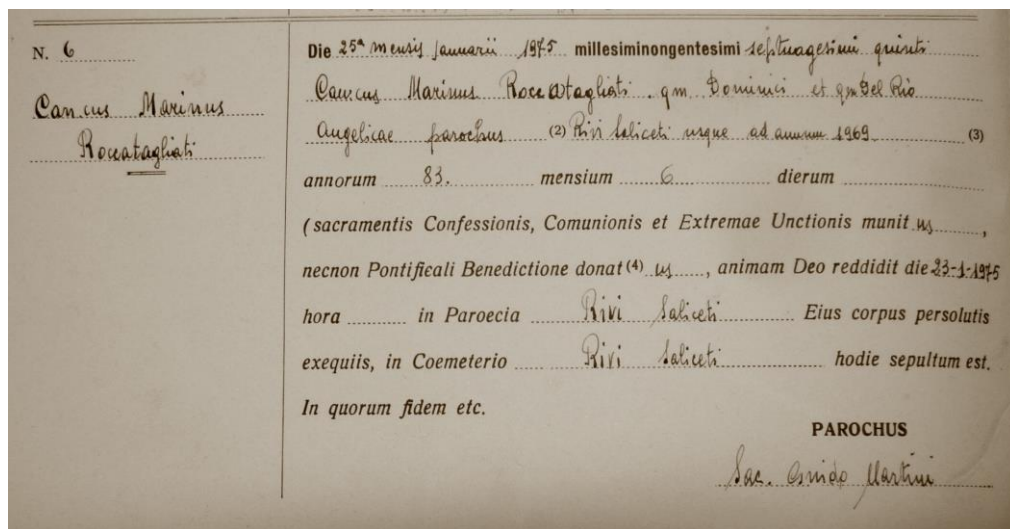 N. 6
Can.cus Marinus
Roccatagliati
Die 25ª mensis Januarii 1975 millesiminongentesimi septuagesimi quinti
Can.cus Marinus Roccatagliati qm Dominici et qm Del Rio
Angelicae parochus (2) Rivi Saliceti usque ad annum 1969 (3)
annorum 83. mensium 6 dierum
(sacramentis Confessionis, Comunionis et Extremae Unctionis munit us,
necnon Pontificali Benedictione donat (4) us, animam Deo reddidit die 23-1-1975
hora in Paroecia Rivi Saliceti Eius corpus persolutis
exequiis, in Coemeterio Rivi Saliceti hodie sepultum est.
In quorum fidem etc.
PAROCHUS
Sac. Guido Martini